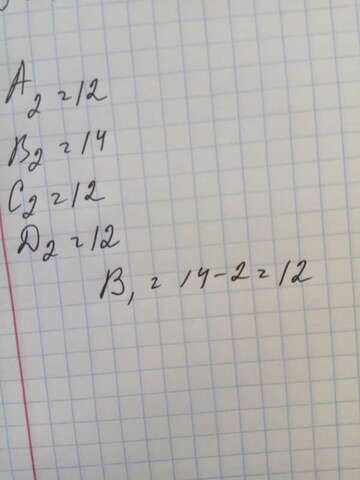 A₂ = 12
B₂ = 14
C₂ = 12
D₂ = 12
B₁ = 14-2 = 12